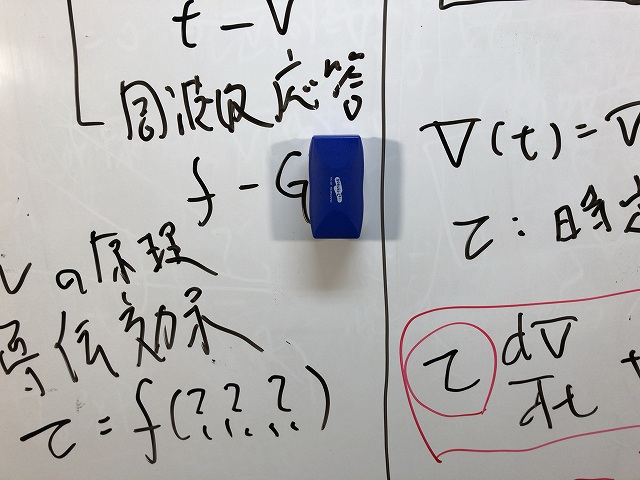 t - V
周波数応答
f - G
の原理
τ = f(?, ?, ?)
V(t) = V
τ : 時
τ dV/dt